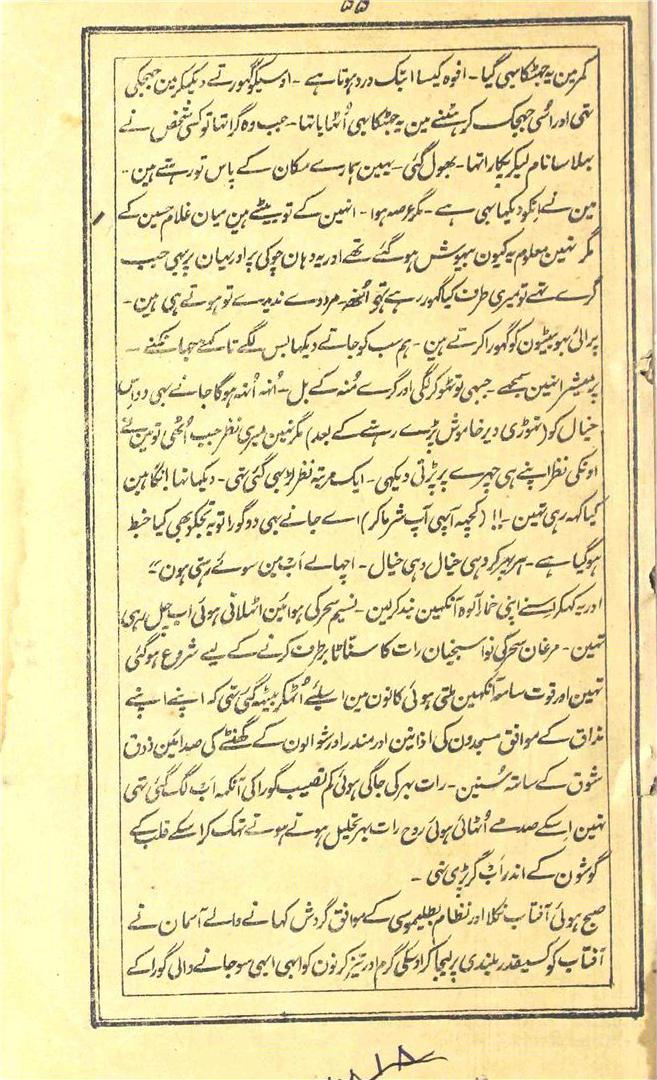 ۵۵
کمر مین یہ جھٹکا بھی گیا - افوہ کیسا ابتک درد ہوتا ہے - اوسیکو گھورتے دیکھکر مین جھجکی
تھی اور اسی جھجک کر ہٹنے مین یہ جھٹکا بھی اُٹھایا تھا - جب وہ گرا تھا تو کسی شخص نے
بھلا سا نام لیکر پکارا تھا - بھول گئی - یہین ہمارے مکان کے پاس تو رہتے ہین -
مین نے انکو دیکھا بھی ہے - مگر عرصہ ہوا - انہین کے تو بیٹے ہین میان غلام حسین کے
مگر نہین معلوم یہ کیون بیہوش ہو گئے تھے اور یہ وہان چوکی پر اور یہان پر بھی جب
گرے تھے تو میری طرف کیا گھور رہے تھے اُنھہ - مردوے ندیدے تو ہوتے ہی ہین -
پرائی بہو بیٹیون کو گھورا کرتے ہین - ہم سب کو جاتے دیکھا بس لگے تاکنے جھانکنے -
پرمیشر انہین سمجھے - جبھی تو ٹھوکر لگی اور گرے مُنہ کے بل - اُنہہ اُنہہ ہوگا جانے بھی دو اس
خیال کو (تھوڑی دیر خاموش پڑے رہنے کے بعد) مگر نہین میری نظر جب اُٹھی تو مین نے
اونکی نظر اپنے ہی چہرے پر پڑتی دیکھی - ایک مرتبہ نظر لڑ بھی گئی تھی - دیکھا تھا! نگاہین
کیا کہہ رہی تھین -!! (کچہہ آپہی آپ شرما کر) اے جانے بھی دو گورا توبہ تجکو بھی کیا خبط
ہو گیا ہے - ہر پھر کر وہی خیال وہی خیال - اچھا لے اَب مین سوئے رہتی ہون "
اور یہ کہکر اسنے اپنی خمار آلودہ آنکھین بند کر لین - نسیم سحر کی ہوائین اٹھلاتی ہوئی اب چل رہی
تھین - مرغان سحر کی نوا سنجیان رات کا سنّاٹا برطرف کرنے کے لیے شروع ہو گئی
تھین اور قوت سامعہ آنکھین ملتی ہوئی کانون مین اسلئے اُٹھکر بیٹھ گئی تھی کہ اپنے اپنے
مذاق کے موافق مسجدون کی اذانین اور مندر اور شوالون کے گھنٹے کی صدائین ذوق
شوق کے ساتھہ سُنین - رات بھر کی جاگی ہوئی کم نصیب گورا کی آنکھہ اَب لگ گئی تھی
نہین اسکے صدمے اُٹھائی ہوئی روح رات بھر تحلیل ہوتے ہوتے تھک کر اسکے قلب کے
گوشون کے اندر اَب گر پڑی تھی -
صبح ہوئی آفتاب نکلا اور نظام بطلیموسی کے موافق گردش کھانے والے آسمان نے
آفتاب کو کسیقدر بلندی پر لیجا کر اوسکی گرم اور تیز کرنون کو ابھی ابھی سو جانے والی گورا کے